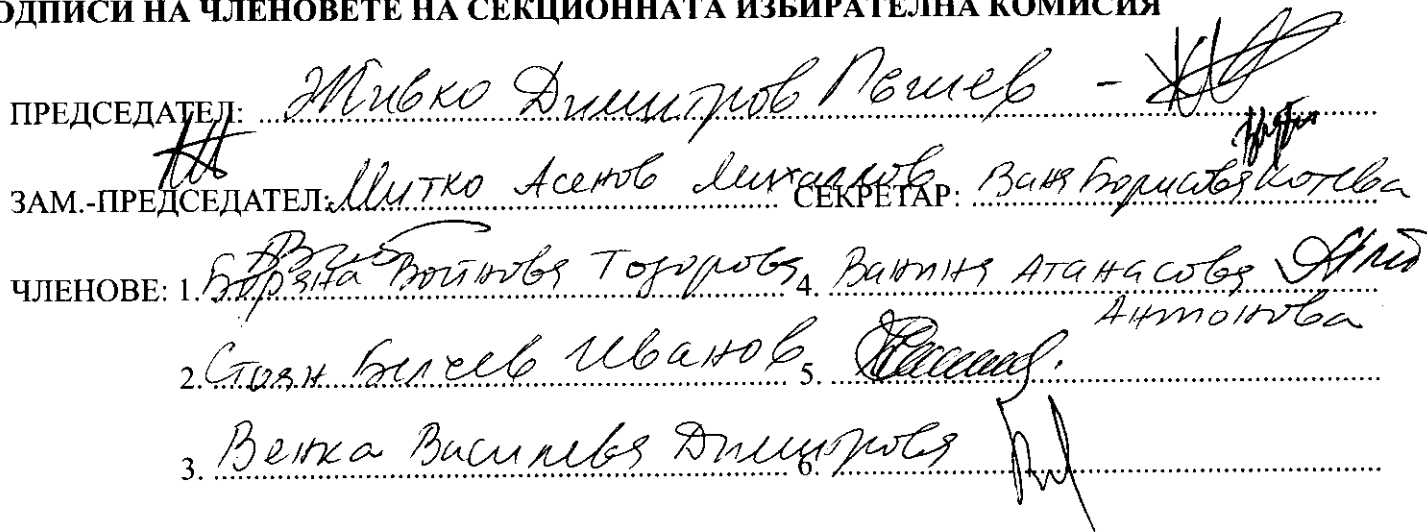 ОДПИСИ НА ЧЛЕНОВЕТЕ НА СЕКЦИОННАТА ИЗБИРАТЕЛНА КОМИСИЯ
ПРЕДСЕДАТЕЛ: Живко Димитров Пешев -
ЗАМ.-ПРЕДСЕДАТЕЛ: Митко Асенов Михайлов СЕКРЕТАР: Ваня Борисова Котева
ЧЛЕНОВЕ: 1. Боряна Войнова Тодорова 4. Ванина Атанасова
Антонова
2. Стоян Белчев Иванов 5.
3. Венка Василева Димитрова 6.